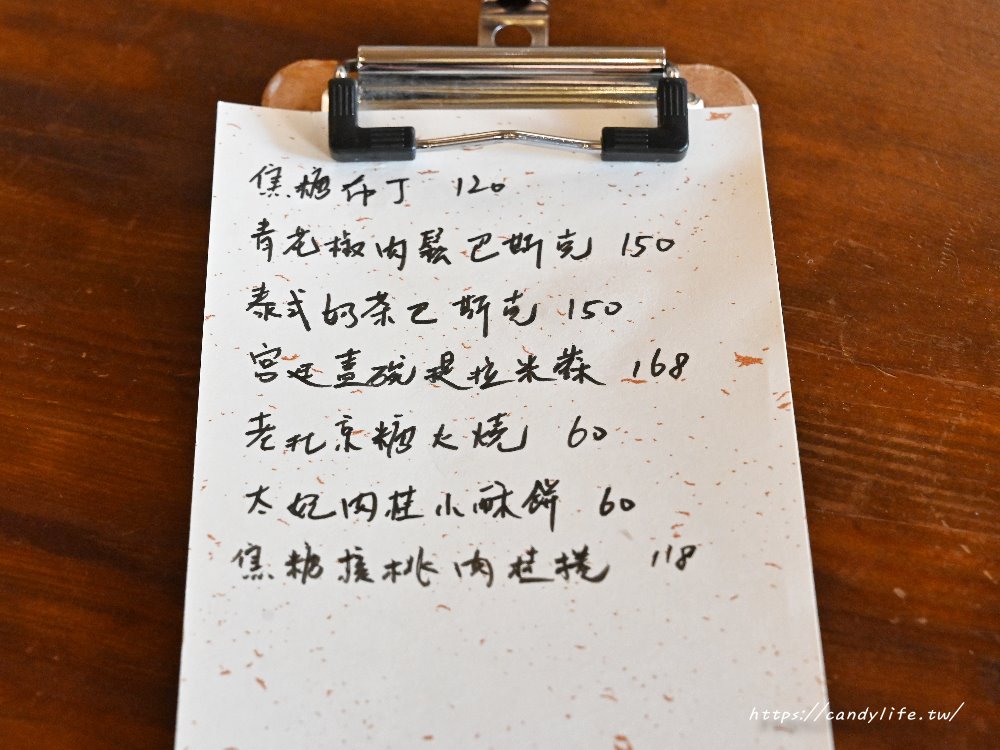 焦糖布丁 120
青花椒肉鬆巴斯克 150
泰式奶茶巴斯克 150
宮廷蓋碗提拉米蘇 168
老北京糖火燒 60
太妃肉桂小酥餅 60
焦糖核桃肉桂捲 118
https://candylife.tw/